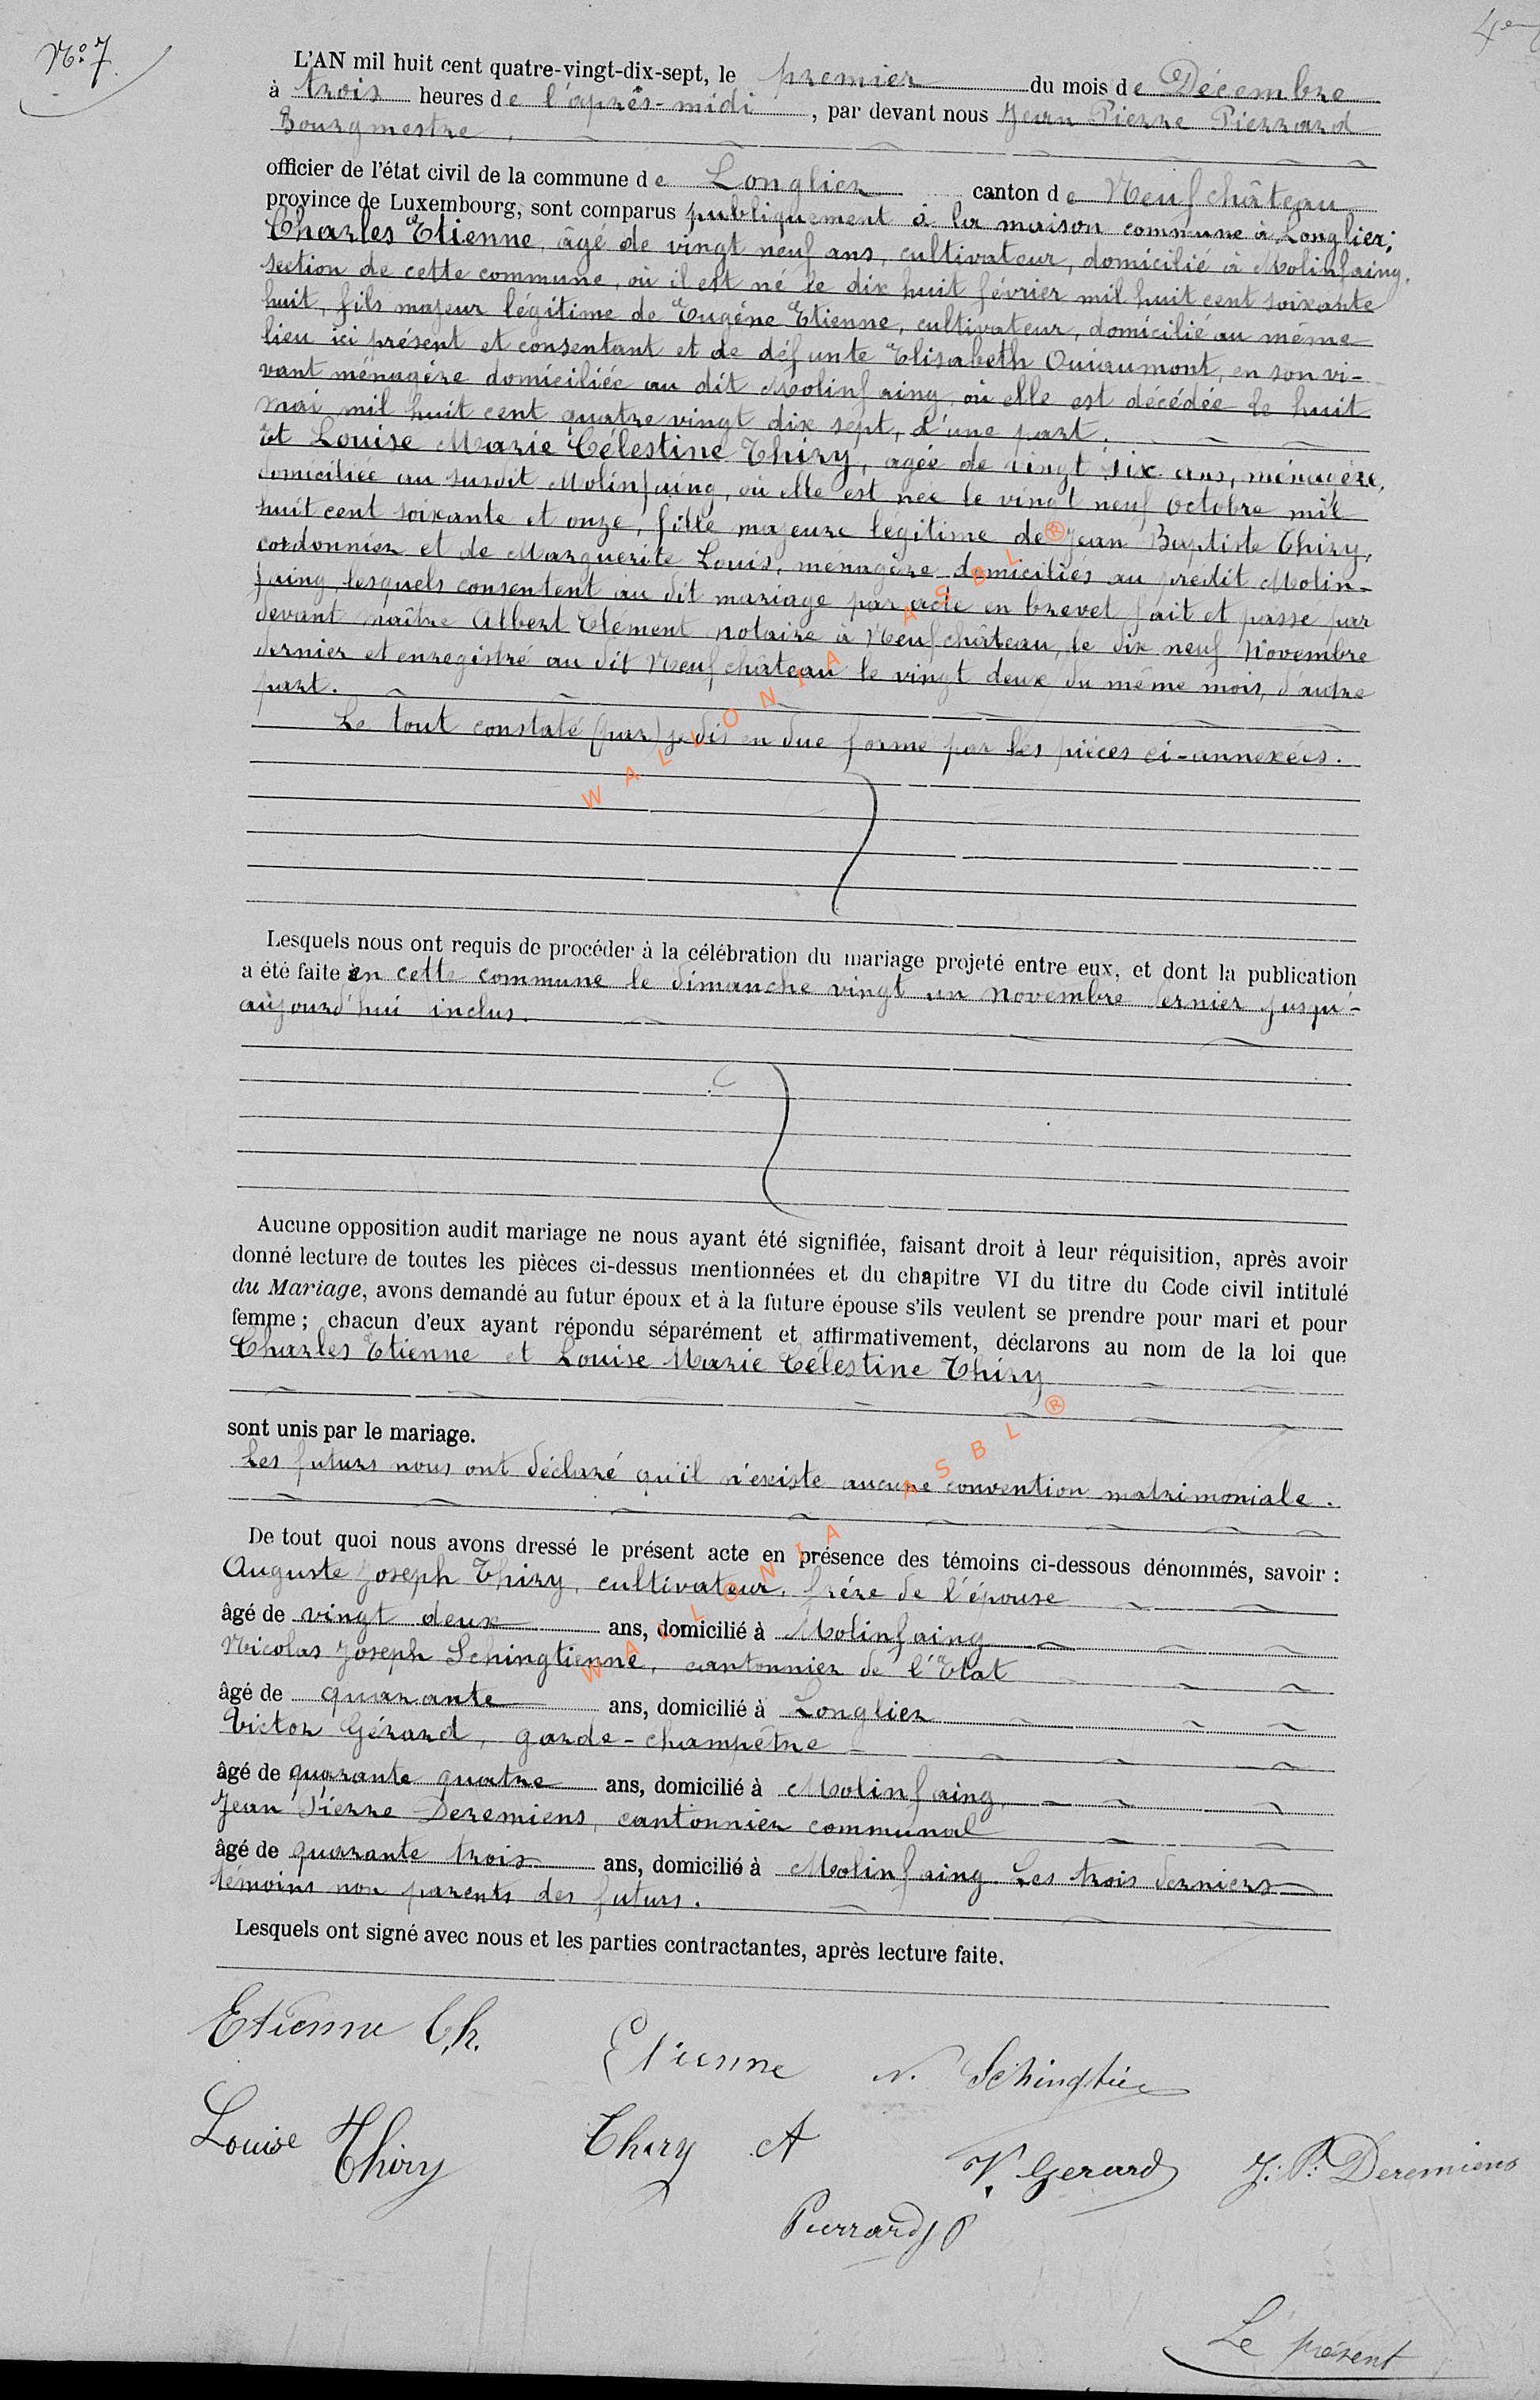 N° 7
L'AN mil huit cent quatre-vingt-dix-sept, le premier du mois de Décembre
à trois heures de l'après-midi, par devant nous Jean Pierre Pierrard
Bourgmestre,
officier de l'état civil de la commune de Longlier canton de Neufchâteau
province de Luxembourg, sont comparus publiquement à la maison commune à Longlier:
Charles Etienne, âgé de vingt neuf ans, cultivateur, domicilié à Molinfaing,
section de cette commune, où il est né le dix huit février mil huit cent soixante
huit, fils majeur légitime de Eugène Etienne, cultivateur, domicilié au même
lieu ici présent et consentant et de défunte Elisabeth Ouiaumont, en son vi-
vant ménagère domiciliée au dit Molinfaing où elle est décédée le huit
mai mil huit cent quatre vingt dix sept, d'une part.
Et Louise Marie Célestine Thiry, agée de vingt six ans, ménagère,
domiciliée au susdit Molinfaing, où elle est née le vingt neuf octobre mil
huit cent soixante et onze, fille majeure légitime de Jean Baptiste Thiry,
cordonnier et de Marguerite Louis, ménagère domiciliés au prédit Molin-
faing lesquels consentent au dit mariage par acte en brevet fait et passé par
devant maître Albert Clément notaire à Neufchâteau, le dix neuf Novembre
dernier et enregistré au dit Neufchâteau le vingt deux du même mois, d'autre
part.
Le tout constaté (par) je dis en due forme par les pièces ci-annexées.
Lesquels nous ont requis de procéder à la célébration du mariage projeté entre eux, et dont la publication
a été faite en cette commune le dimanche vingt un novembre dernier jusqu'-
aujourd'hui inclus.
Aucune opposition audit mariage ne nous ayant été signifiée, faisant droit à leur réquisition, après avoir
donné lecture de toutes les pièces ci-dessus mentionnées et du chapitre VI du titre du Code civil intitulé
du Mariage, avons demandé au futur époux et à la future épouse s'ils veulent se prendre pour mari et pour
femme; chacun d'eux ayant répondu séparément et affirmativement, déclarons au nom de la loi que
Charles Etienne et Louise Marie Célestine Thiry
sont unis par le mariage.
Les futurs nous ont déclaré qu'il n'existe aucune convention matrimoniale.
De tout quoi nous avons dressé le présent acte en présence des témoins ci-dessous dénommés, savoir :
Auguste Joseph Thiry, cultivateur, frère de l'épouse
âgé de vingt deux ans, domicilié à Molinfaing
Nicolas Joseph Schingtienne, cantonnier de l'Etat
âgé de quarante ans, domicilié à Longlier
Victor Gérard, garde-champêtre
âgé de quarante quatre ans, domicilié à Molinfaing,
Jean Pierre Deremiens, cantonnier communal
âgé de quarante trois ans, domicilié à Molinfaing Les trois derniers
témoins non parents des futurs.
Lesquels ont signé avec nous et les parties contractantes, après lecture faite.
Etienne Ch. Etienne N. Schingtie
Louise Thiry Thiry A V. Gerard J. P. Deremiens
Pierrard J P
Le présent
WALLONIA ASBL ®
WALLONIA ASBL ®